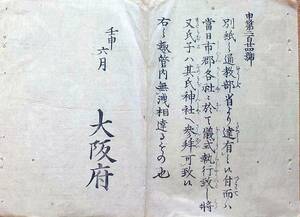 別紙之通教部省より達有之候付而ハ
當日市郡各社ニ於て儀式執行致し將
又氏子ハ其氏神社へ参拜可致候
右之趣管内無洩相達るもの也
壬申
六月
大阪府